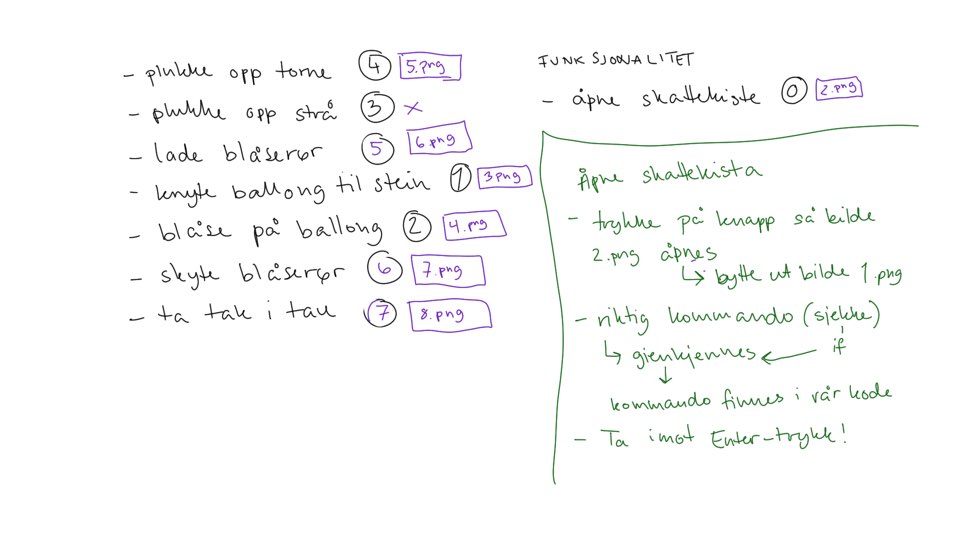 - plukke opp torne 4 5.png
- plukke opp strå 3 x
- lade blåserør 5 6.png
- knyte ballong til stein 1 3png
- blåse på ballong 2 4.png
- skyte blåserør 6 7.png
- ta tak i tau 7 8.png
FUNKSJONALITET
- åpne skattekiste 0 2.png
Åpne skattekista
- trykke på knapp så bilde
2.png åpnes
↳ bytte ut bilde 1.png
- riktig kommando (sjekke)
↳ gjenkjennes ← if
↓
kommando finnes i vår kode
- Ta imot Enter-trykk!